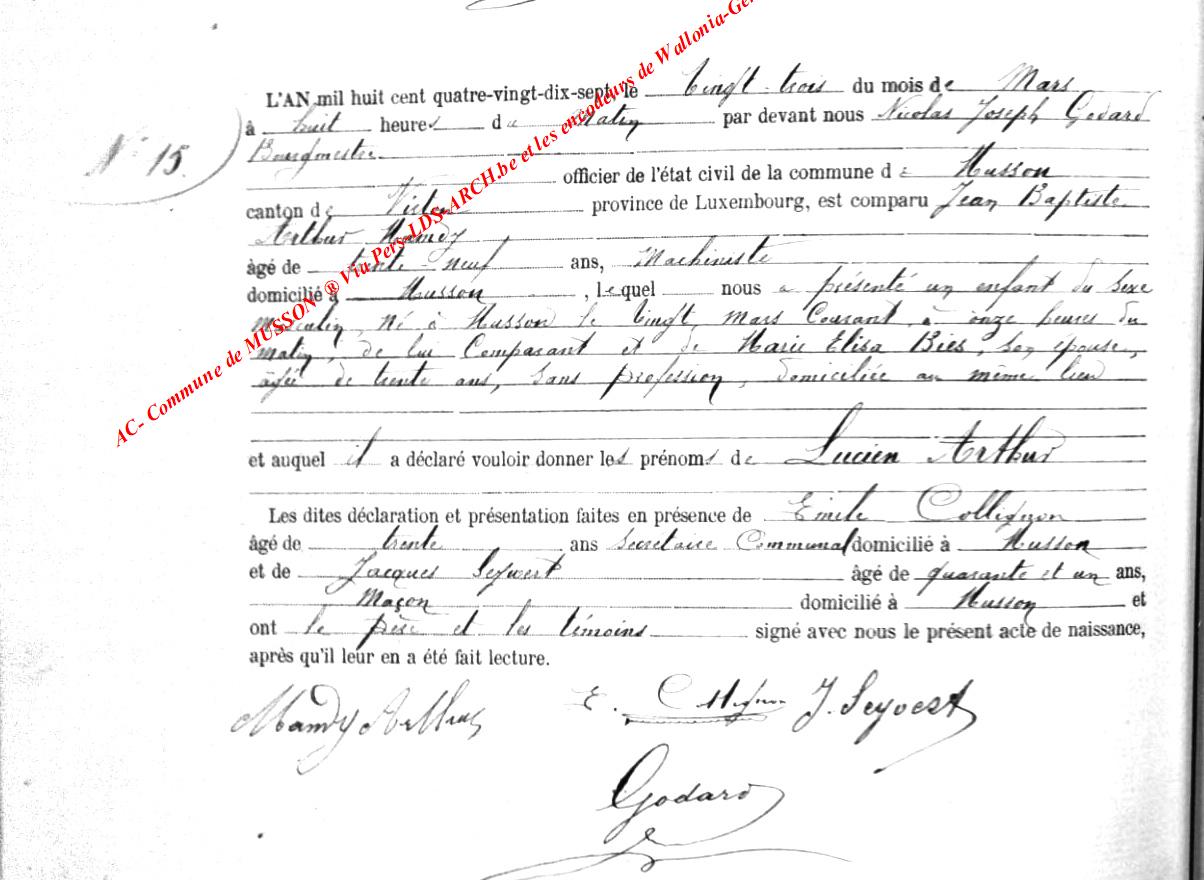 L'AN mil huit cent quatre-vingt-dix-sept, le Vingt-trois du mois de Mars
à huit heures du Matin par devant nous Nicolas Joseph Godard
N° 15.
Bourgmestre
officier de l'état civil de la commune de Musson
canton de Virton province de Luxembourg, est comparu Jean Baptiste
Arthur Mandy
âgé de trente-neuf ans, Machiniste
domicilié à Musson, lequel nous a présenté un enfant du sexe
Masculin, né à Musson le Vingt, Mars Courant, à onze heures du
matin, de lui Comparant et de Marie Elisa Bies, son épouse,
âgée de trente ans, sans profession, domiciliée au même lieu
et auquel il a déclaré vouloir donner les prénoms de Lucien Arthur
Les dites déclaration et présentation faites en présence de Emile Collignon
âgé de trente ans Secrétaire Communal domicilié à Musson
et de Jacques Seywert âgé de quarante et un ans,
Maçon domicilié à Musson et
ont le père et les témoins signé avec nous le présent acte de naissance,
après qu'il leur en a été fait lecture.
Mandy Arthur E. Collignon J. Seywert
Godard
AC- Commune de MUSSON ® Via Pers-LDS-ARCH.be et les encodeurs de Wallonia-Ge